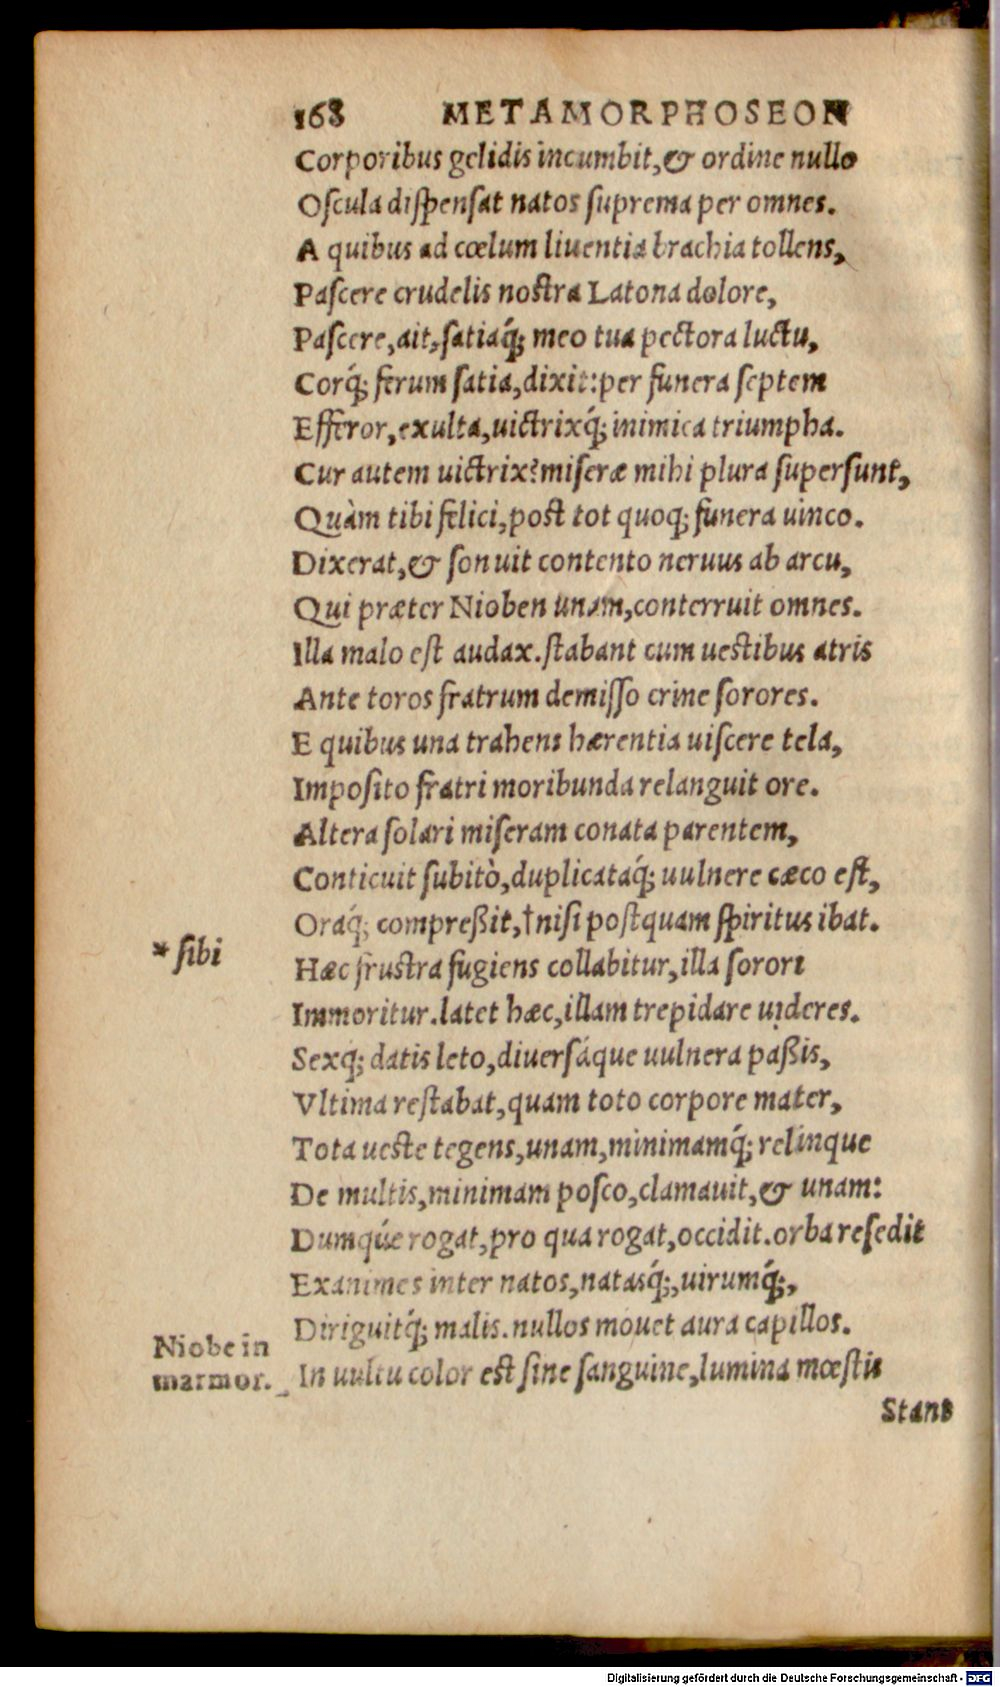 168 METAMORPHOSEON
Corporibus gelidis incumbit, & ordine nullo
Oscula dispensat natos suprema per omnes.
A quibus ad cœlum liuentia brachia tollens,
Pascere crudelis nostra Latona dolore,
Pascere, ait, satiaq́; meo tua pectora luctu,
Corq́; ferum satia, dixit: per funera septem
Efferor, exulta, uictrixq́; inimica triumpha.
Cur autem uictrix? miseræ mihi plura supersunt,
Quàm tibi felici, post tot quoq; funera uinco.
Dixerat, & sonuit contento neruus ab arcu,
Qui præter Nioben unam, conterruit omnes.
Illa malo est audax. stabant cum uestibus atris
Ante toros fratrum demisso crine sorores.
E quibus una trahens hærentia uiscere tela,
Imposito fratri moribunda relanguit ore.
Altera solari miseram conata parentem,
Conticuit subitò, duplicataq́; uulnere cæco est,
Oraq́; compreßit, †nisi postquam spiritus ibat.
* sibi
Hæc frustra fugiens collabitur, illa sorori
Immoritur. latet hæc, illam trepidare uideres.
Sexq́; datis leto, diuersáque uulnera paßis,
Vltima restabat, quam toto corpore mater,
Tota ueste tegens, unam, minimamq́; relinque
De multis, minimam posco, clamauit, & unam:
Dumqúe rogat, pro qua rogat, occidit. orba resedit
Exanimes inter natos, natasq́;, uirumq́;,
Diriguitq́; malis. nullos mouet aura capillos.
Niobe in
marmor.
In uultu color est sine sanguine, lumina mœstis
Stant
Digitalisierung gefördert durch die Deutsche Forschungsgemeinschaft - DFG